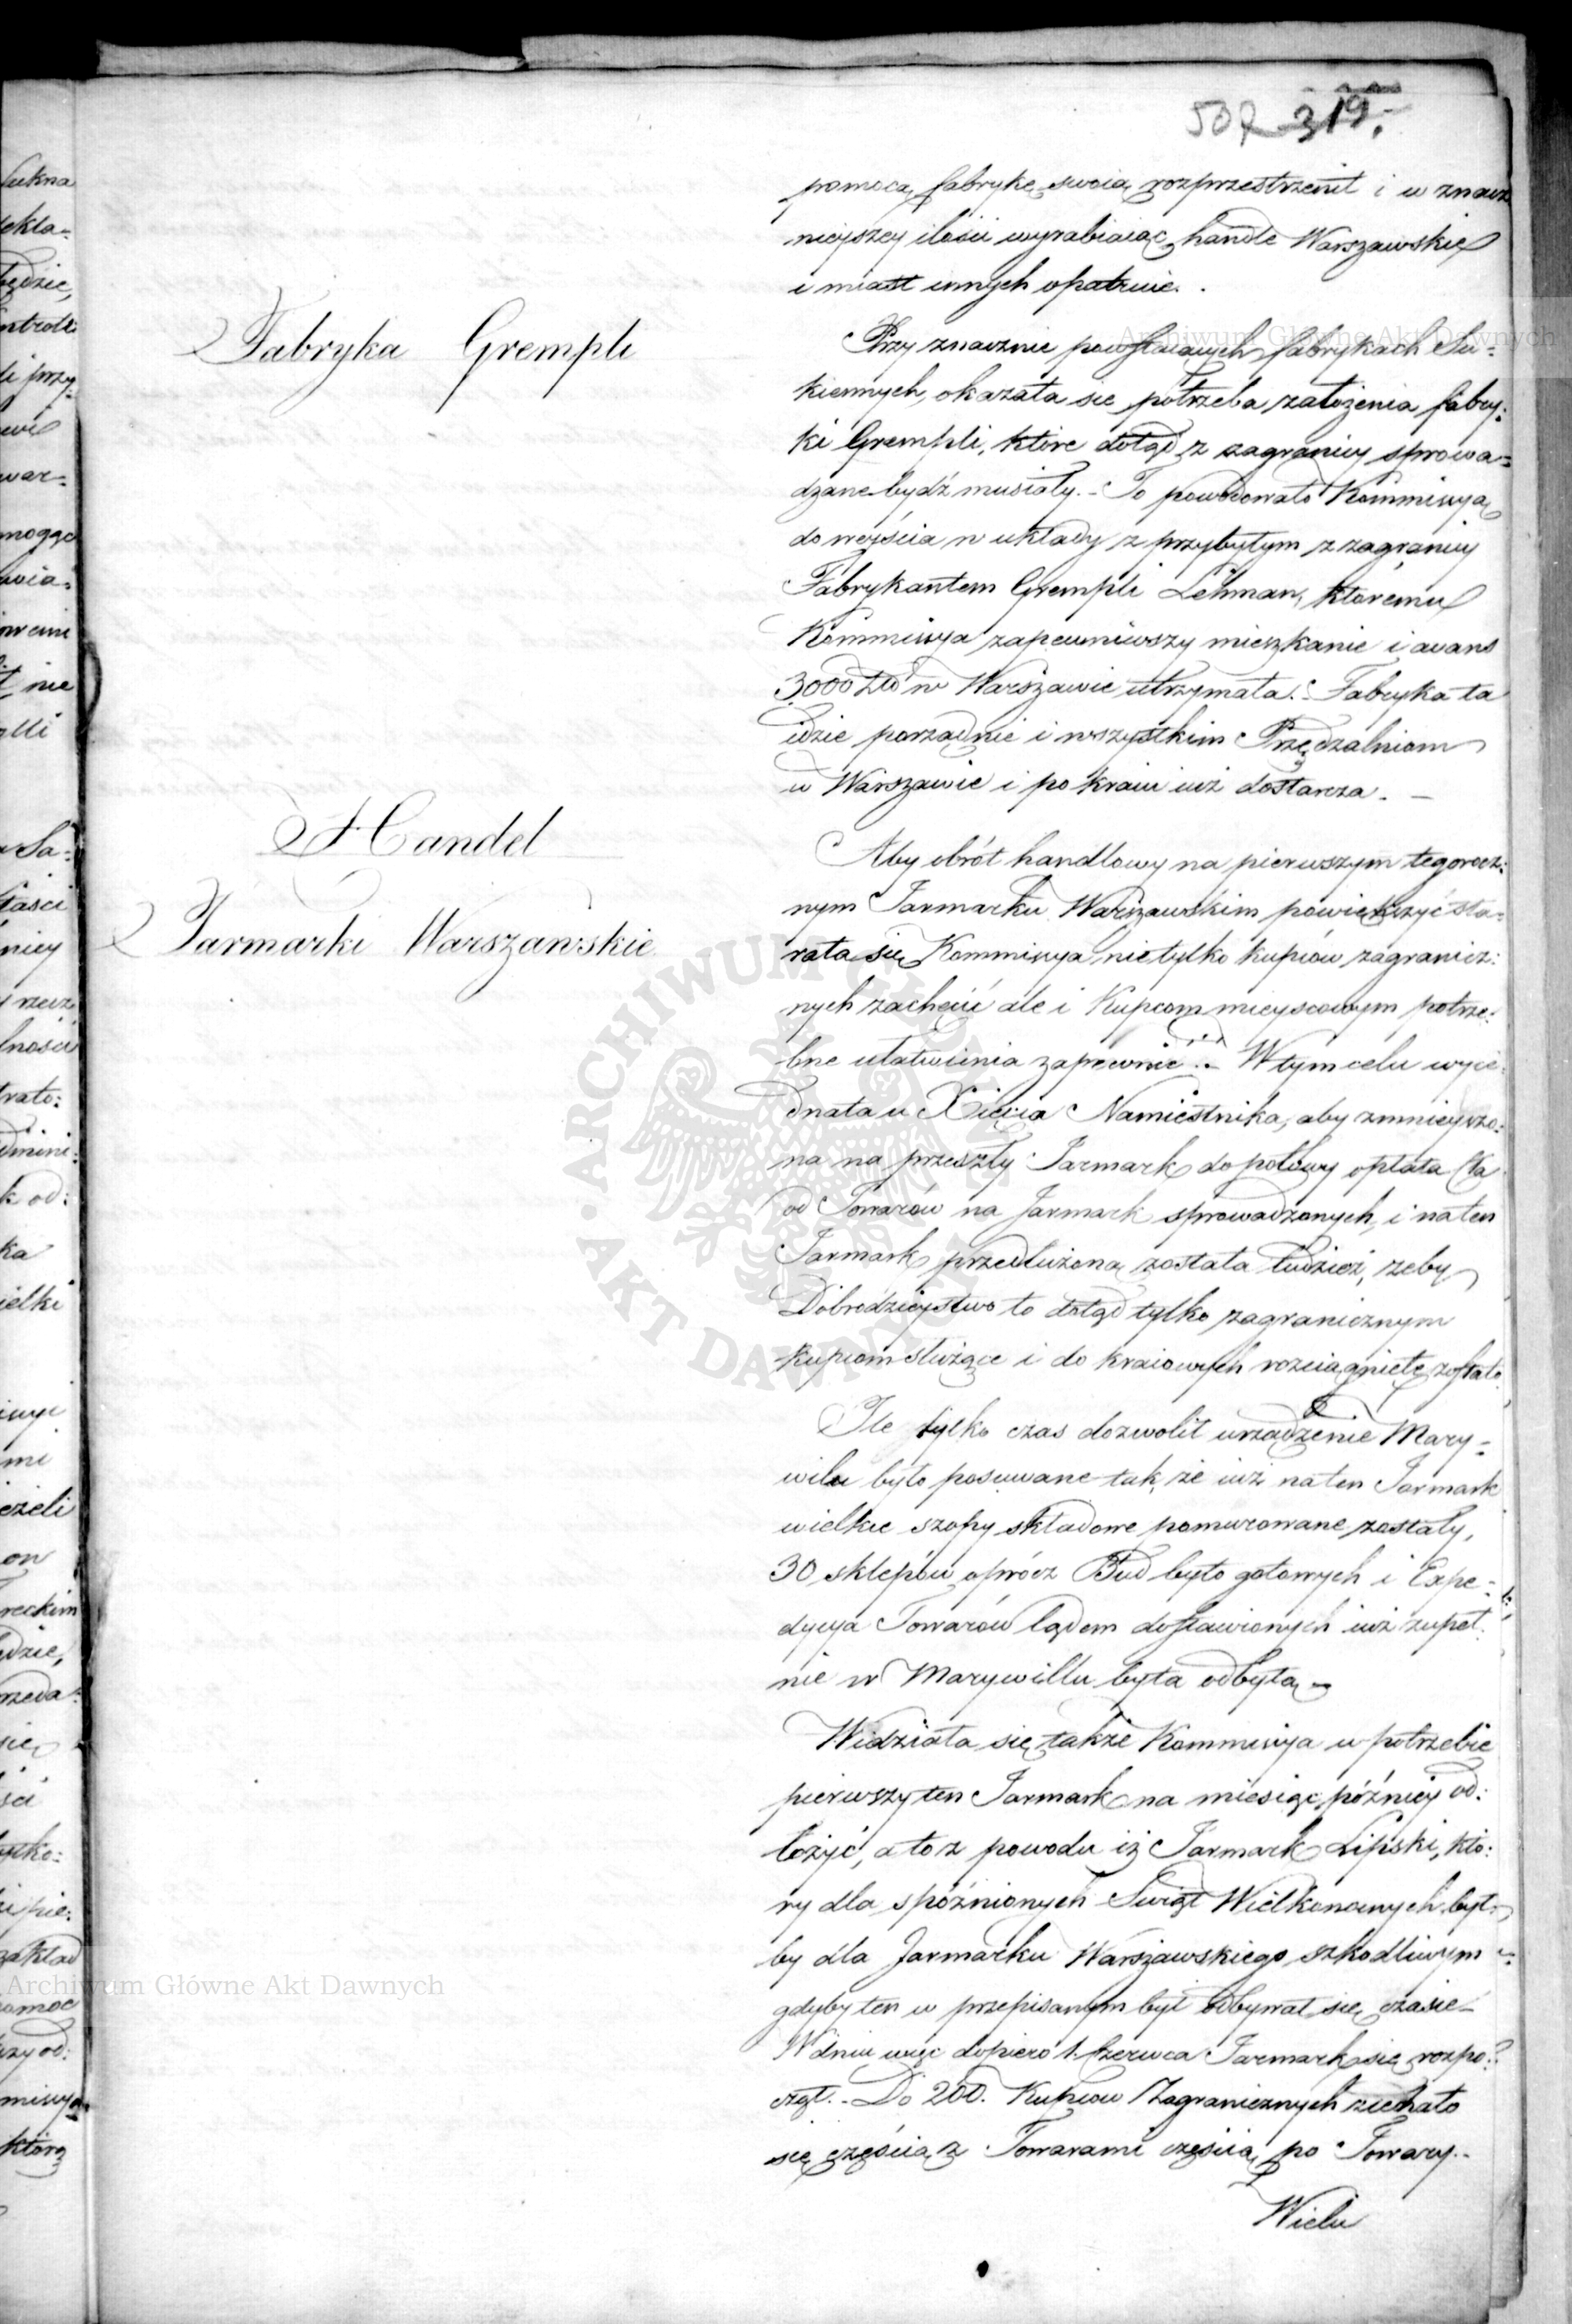 507 319.
pomocą fabrykę swoią rozprzestrzenił i w znacz
nieyszey ilości wyrabiaiąc handle Warszawskie
i miast innych opatruie.
Fabryka Grempli
Przy znacznie powstaiących fabrykach Su-
kiennych, okazała sie potrzeba założenia fabry-
ki Grempli, które dotąd z zagranicy sprowa-
dzane bydź musiały. - To powodowało Kommissyą
do weyścia w układy z przybyłym z zagranicy
Fabrykantem Grempli Lehman, któremu
Kommissya zapewniwszy mieszkanie i avans
3000 Złł w Warszawie utrzymała. - Fabryka ta
idzie porządnie i wszystkim Przędzalniom
w Warszawie i po kraiu iuż dostarcza. -
Handel
Jarmarki Warszawskie
Aby obrót handlowy na pierwszym tegorocz:
nym Jarmarku Warszawskim powiększyć sta-
rała się Kommissya nietylko kupców zagranicz:
nych zachęcić ale i Kupcom mieyscowym potrze:
bne ułatwienia zapewnić. - W tym celu wyie:
dnała u Xięcia Namiestnika, aby zmnieyszo:
na na przeszły Jarmark do połowy opłata Cła
od Towarów na Jarmark sprowadzonych, i na ten
Jarmark przedłużoną została tudzież, żeby
Dobrodzieystwo to dotąd tylko zagranicznym
kupcom służące i do kraiowych rozciągnięte zostało.
Ile tylko czas dozwolił urządzenie Mary-
wilu było posuwane tak, że iuż na ten Jarmark
wielkie szopy składowe pomurowane zostały,
30 sklepów oprócz Bud było gotowych i Expe-
dycya Towarów lądem dostawionych iuż zupeł:
nie w Marywillu była odbytą -
Widziała się także Kommissya w potrzebie
pierwszy ten Jarmark na miesiąc późniey od:
łożyć, a to z powodu iż Jarmark Lipski, któ:
ry dla spóźnionych Swiąt Wielkonocnych był-
by dla Jarmarku Warszawskiego szkodliwym
gdyby ten w przepisanym był odbywał się czasie -
W dniu więc dopiero 1. Czerwca Jarmark się rozpo:
czął. - Do 200. Kupców Zagranicznych ziechało
się częścią z Towarami częścią po Towary. -
Wielu
Archiwum Główne Akt Dawnych
Archiwum Główne Akt Dawnych